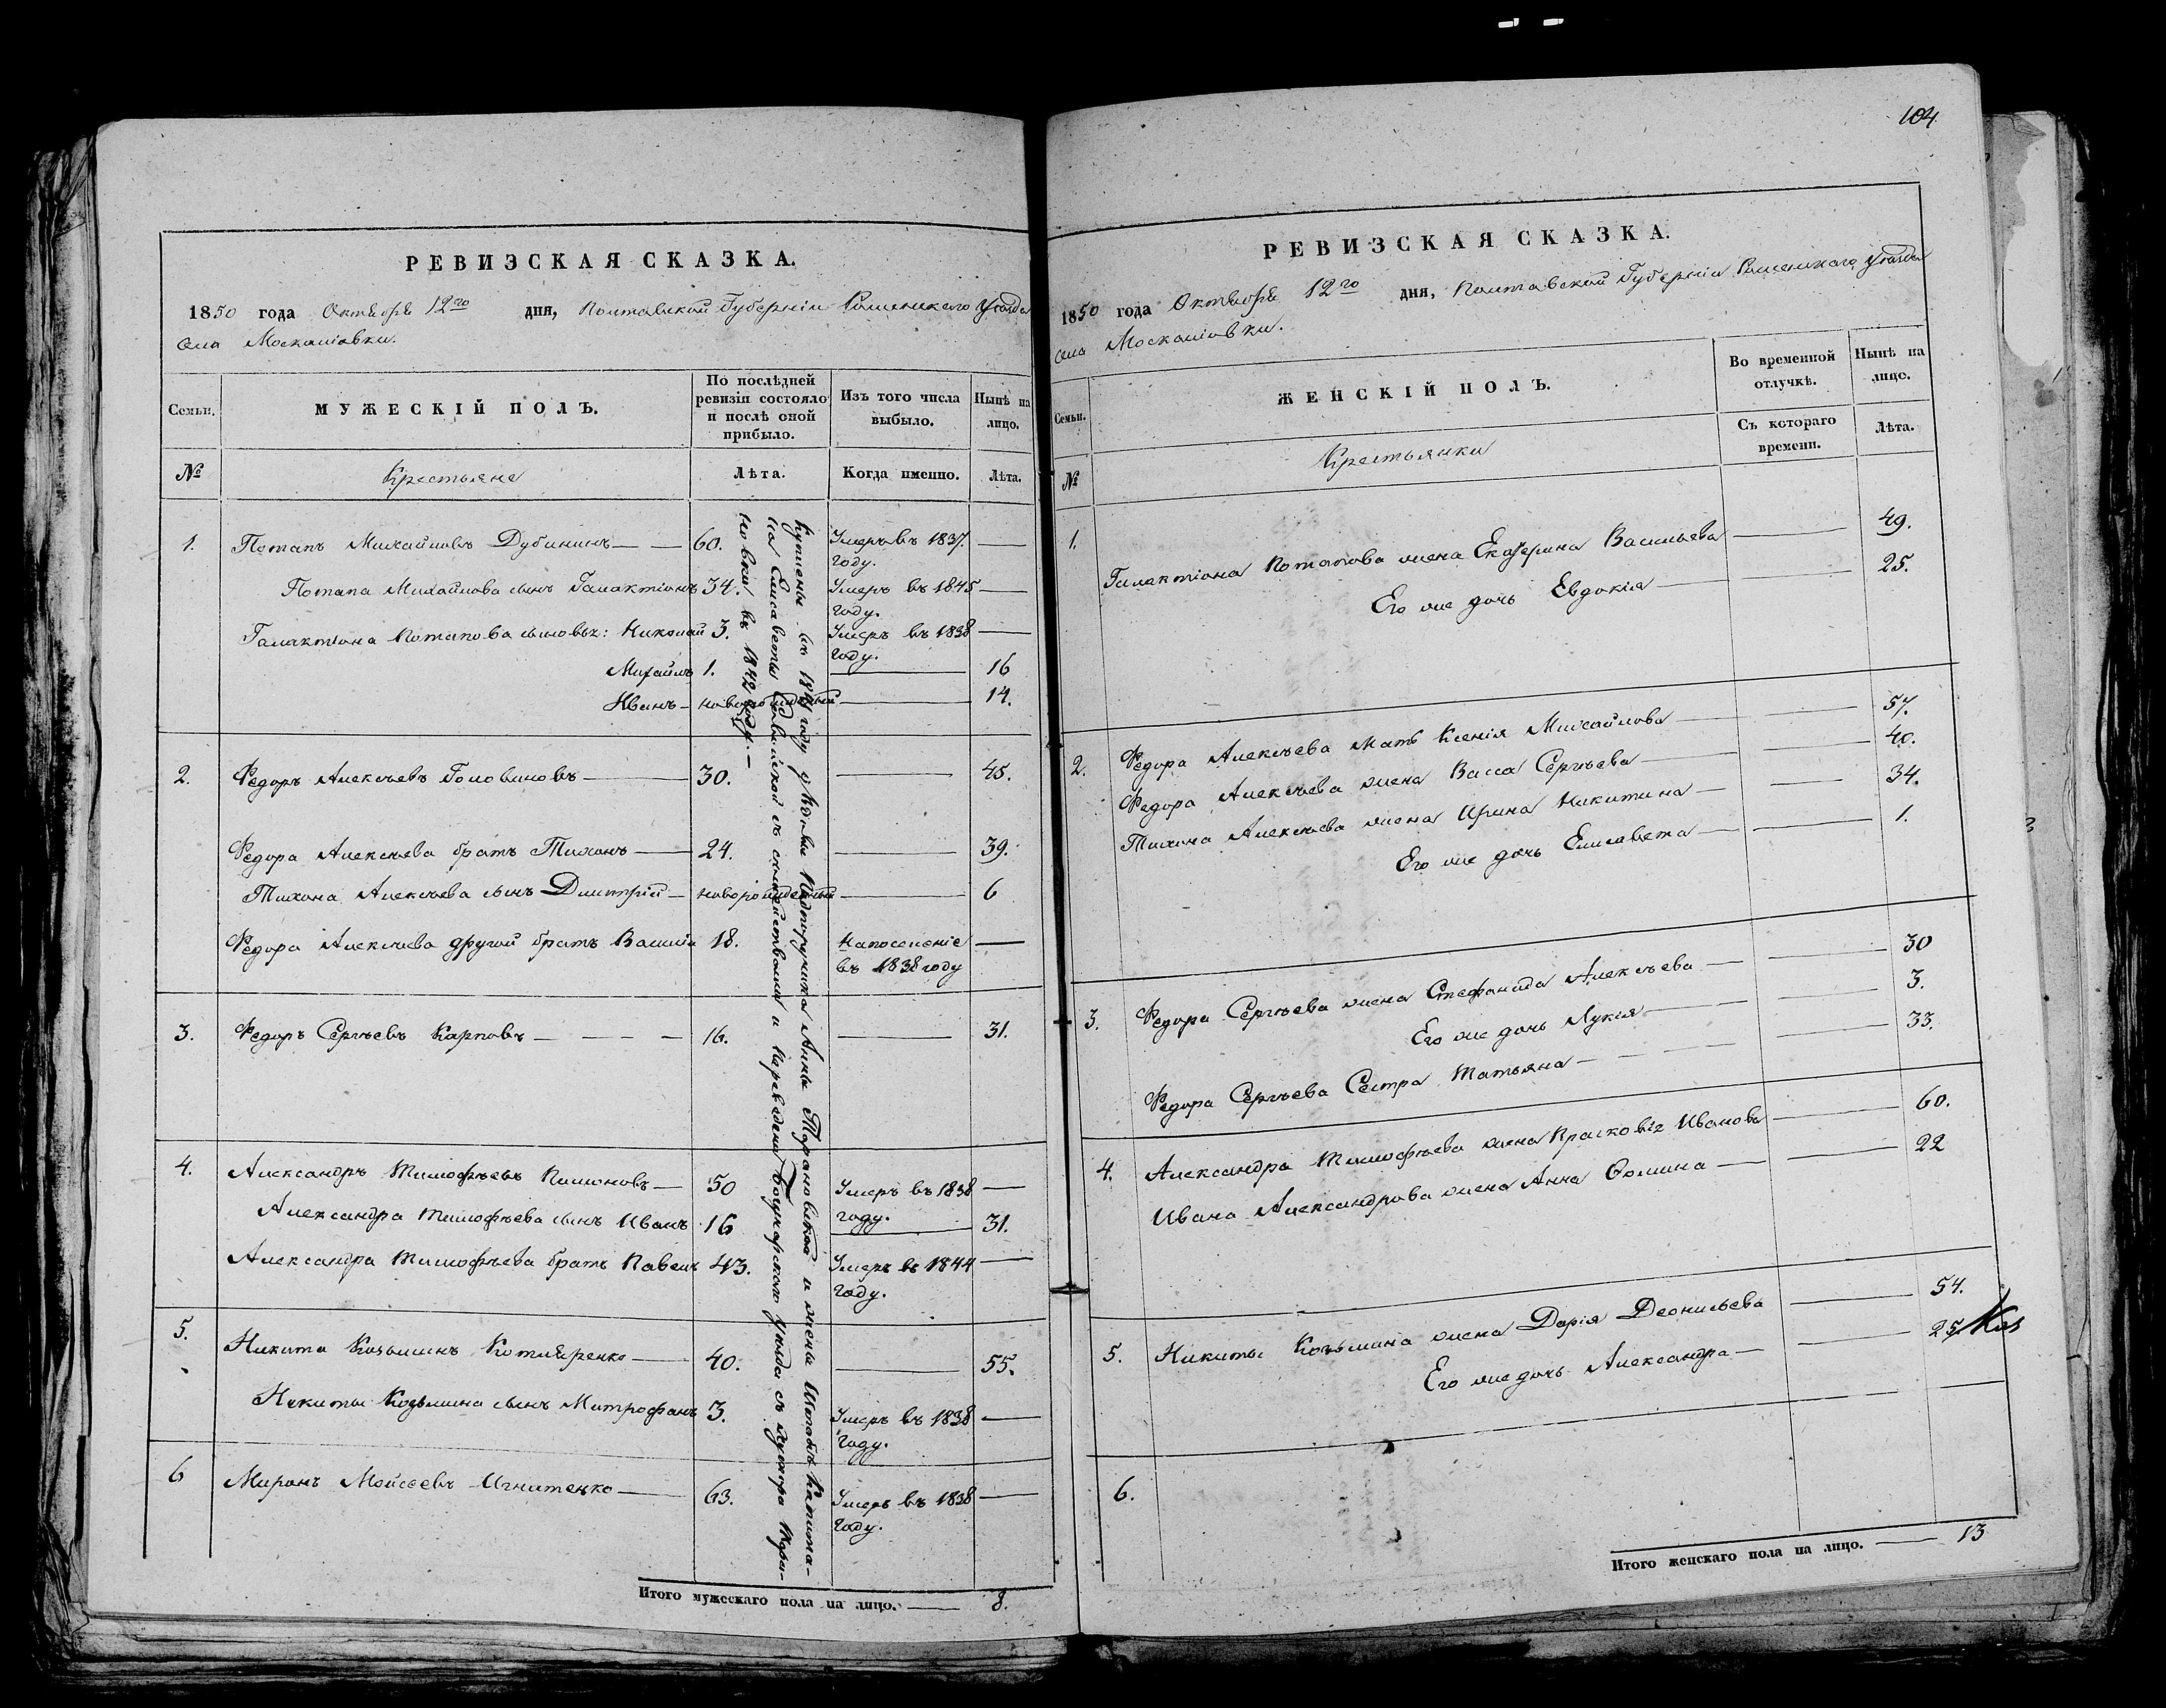 104
РЕВИЗСКАЯ СКАЗКА.
1850 года Октября 12го дня, Полтавской Губерніи Роменскаго Уѣзда
села Москалiовки.
Семьи. МУЖЕСКІЙ ПОЛЪ. По послѣдней ревизіи состояло и послѣ оной прибыло. Изъ того числа выбыло. Нынѣ на лицо.
№ Крестьяне Лѣта. Когда именно. Лѣта.
1. Потапъ Михайловъ Дубининъ 60. Умеръ въ 1837. году.
Потапа Михайлова сынъ Галактіонъ 34. Умеръ въ 1845 году.
Галактіона Потапова сыновья: Николай 3. Умеръ въ 1838 году.
Михайлъ 1. 16
Иванъ новорожденный 14.
2. Федоръ Алексѣевъ Головиновъ 30. 45.
Федора Алексѣева братъ Тихонъ 24. 39.
Тихона Алексѣева сынъ Димитрій новорожденный 6
Федора Алексѣева другой братъ Василій 18. На поселеніе въ 1838 году
3. Федоръ Сергѣевъ Карповъ 16. 31.
4. Александръ Тимофѣевъ Пимоновъ 50 Умеръ въ 1838 году.
Александра Тимофѣева сынъ Иванъ 16 31.
Александра Тимофѣева братъ Павелъ 43. Умеръ въ 1844 году.
5. Никита Козьминъ Котляренко 40. 55.
Никиты Козьмина сынъ Митрофанъ 3. Умеръ въ 1838 году.
6 Миронъ Мойсеевъ Игнатенко 63. Умеръ въ 1838 году.
Куплены въ году у Вдовы Подпоручика Анны Тарановской и жены Штабсъ Капита-
на Елисаветы съ семействами и переведены уѣзда съ хутора Тара-
новки въ 1842 году.
Итого мужескаго пола на лицо. 8.
РЕВИЗСКАЯ СКАЗКА.
1850 года Октября 12го дня, Полтавской Губерніи Роменскаго Уѣзда
села Москалiовки.
Семьи. ЖЕНСКІЙ ПОЛЪ. Во временной отлучкѣ. Нынѣ на лицо.
№ Крестьянки Съ котораго времени. Лѣта.
1. Галактіона Потапова жена Екатерина Васильева 49.
Его же дочь Евдокія 25.
2. Федора Алексѣева мать Ксенія Михайлова 57.
Федора Алексѣева жена Васса Сергѣева 40.
Тихона Алексѣева жена Ирина Никитина 34.
Его же дочь Елисавета 1.
3. Федора Сергѣева жена Стефанида Алексѣева 30
Его же дочь Лукія 3.
Федора Сергѣева Сестра Татьяна 33.
4. Александра Тимофѣева жена Прасковія Иванова 60.
Ивана Александрова жена Анна Фомина 22
5. Никиты Козьмина жена Дарія Леонтьева 54.
Его же дочь Александра 25.
6.
Итого женскаго пола на лицо. 13